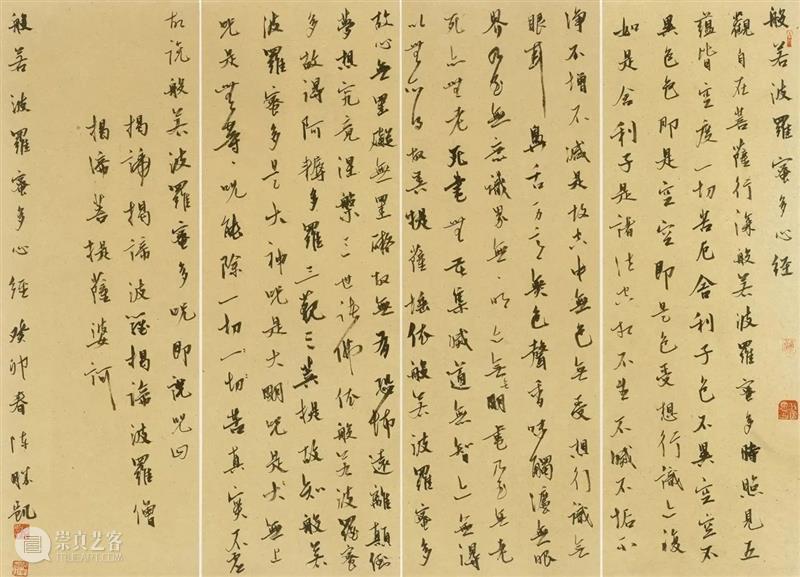 般若波羅蜜多心经
觀自在菩薩行深般若波羅蜜多時照見五
蘊皆空度一切苦厄舍利子色不異空空不
異色色即是空空即是色受想行識亦復
如是舍利子是諸法空相不生不滅不垢不
淨不增不減是故空中無色無受想行識無
眼耳鼻舌身意無色聲香味觸法無眼
界乃至無意識界無無明亦無無明盡乃至無老
死亦無老死盡無苦集滅道無智亦無得
以無所得故菩提薩埵依般若波羅蜜多
故心無罣礙無罣礙故無有恐怖遠離顛倒
夢想究竟涅槃三世諸佛依般若波羅蜜
多故得阿耨多羅三藐三菩提故知般若
波羅蜜多是大神咒是大明咒是大無上
咒是無等々咒能除一切一切苦真實不虛
故説般若波羅蜜多咒即説咒曰
揭諦揭諦波羅揭諦波羅僧
揭諦菩提薩婆訶
般若波羅蜜多心經癸卯春陈勝凱
崇真艺客